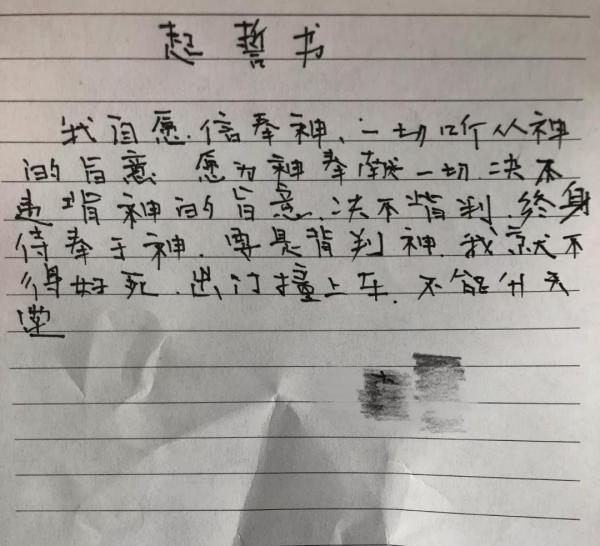 起誓书
我自愿信奉神、一切听从神
的旨意 愿为神奉献一切.决不
违背神的旨意.决不背判.终身
侍奉于神.要是背判神.我就不
得好死.出门撞上车.不能升天
堂